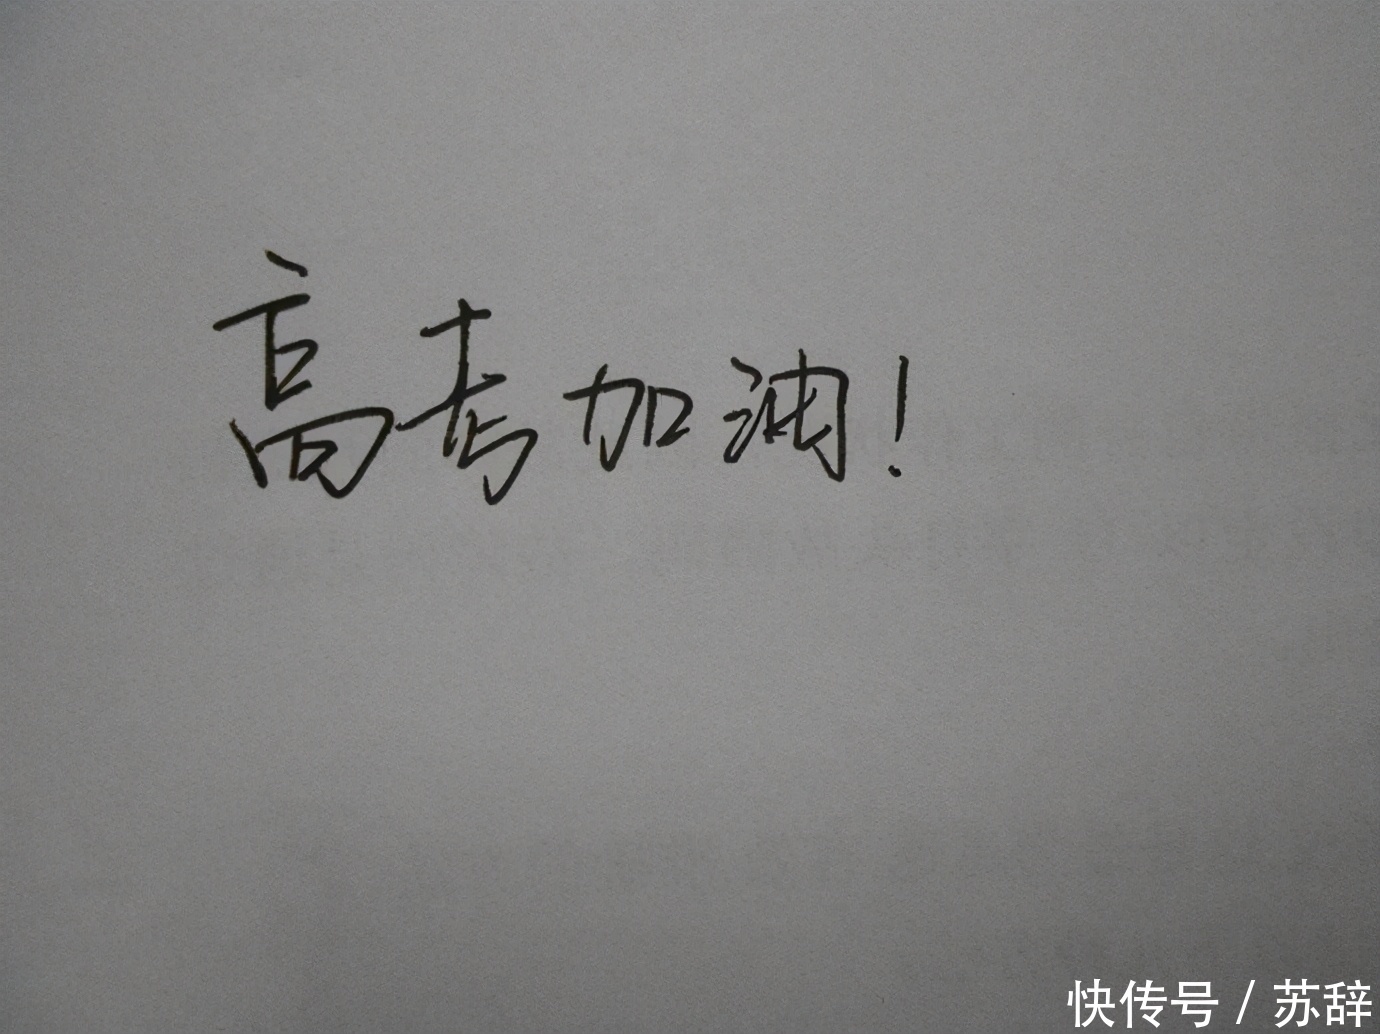 高考加油！
快传号 / 苏辞